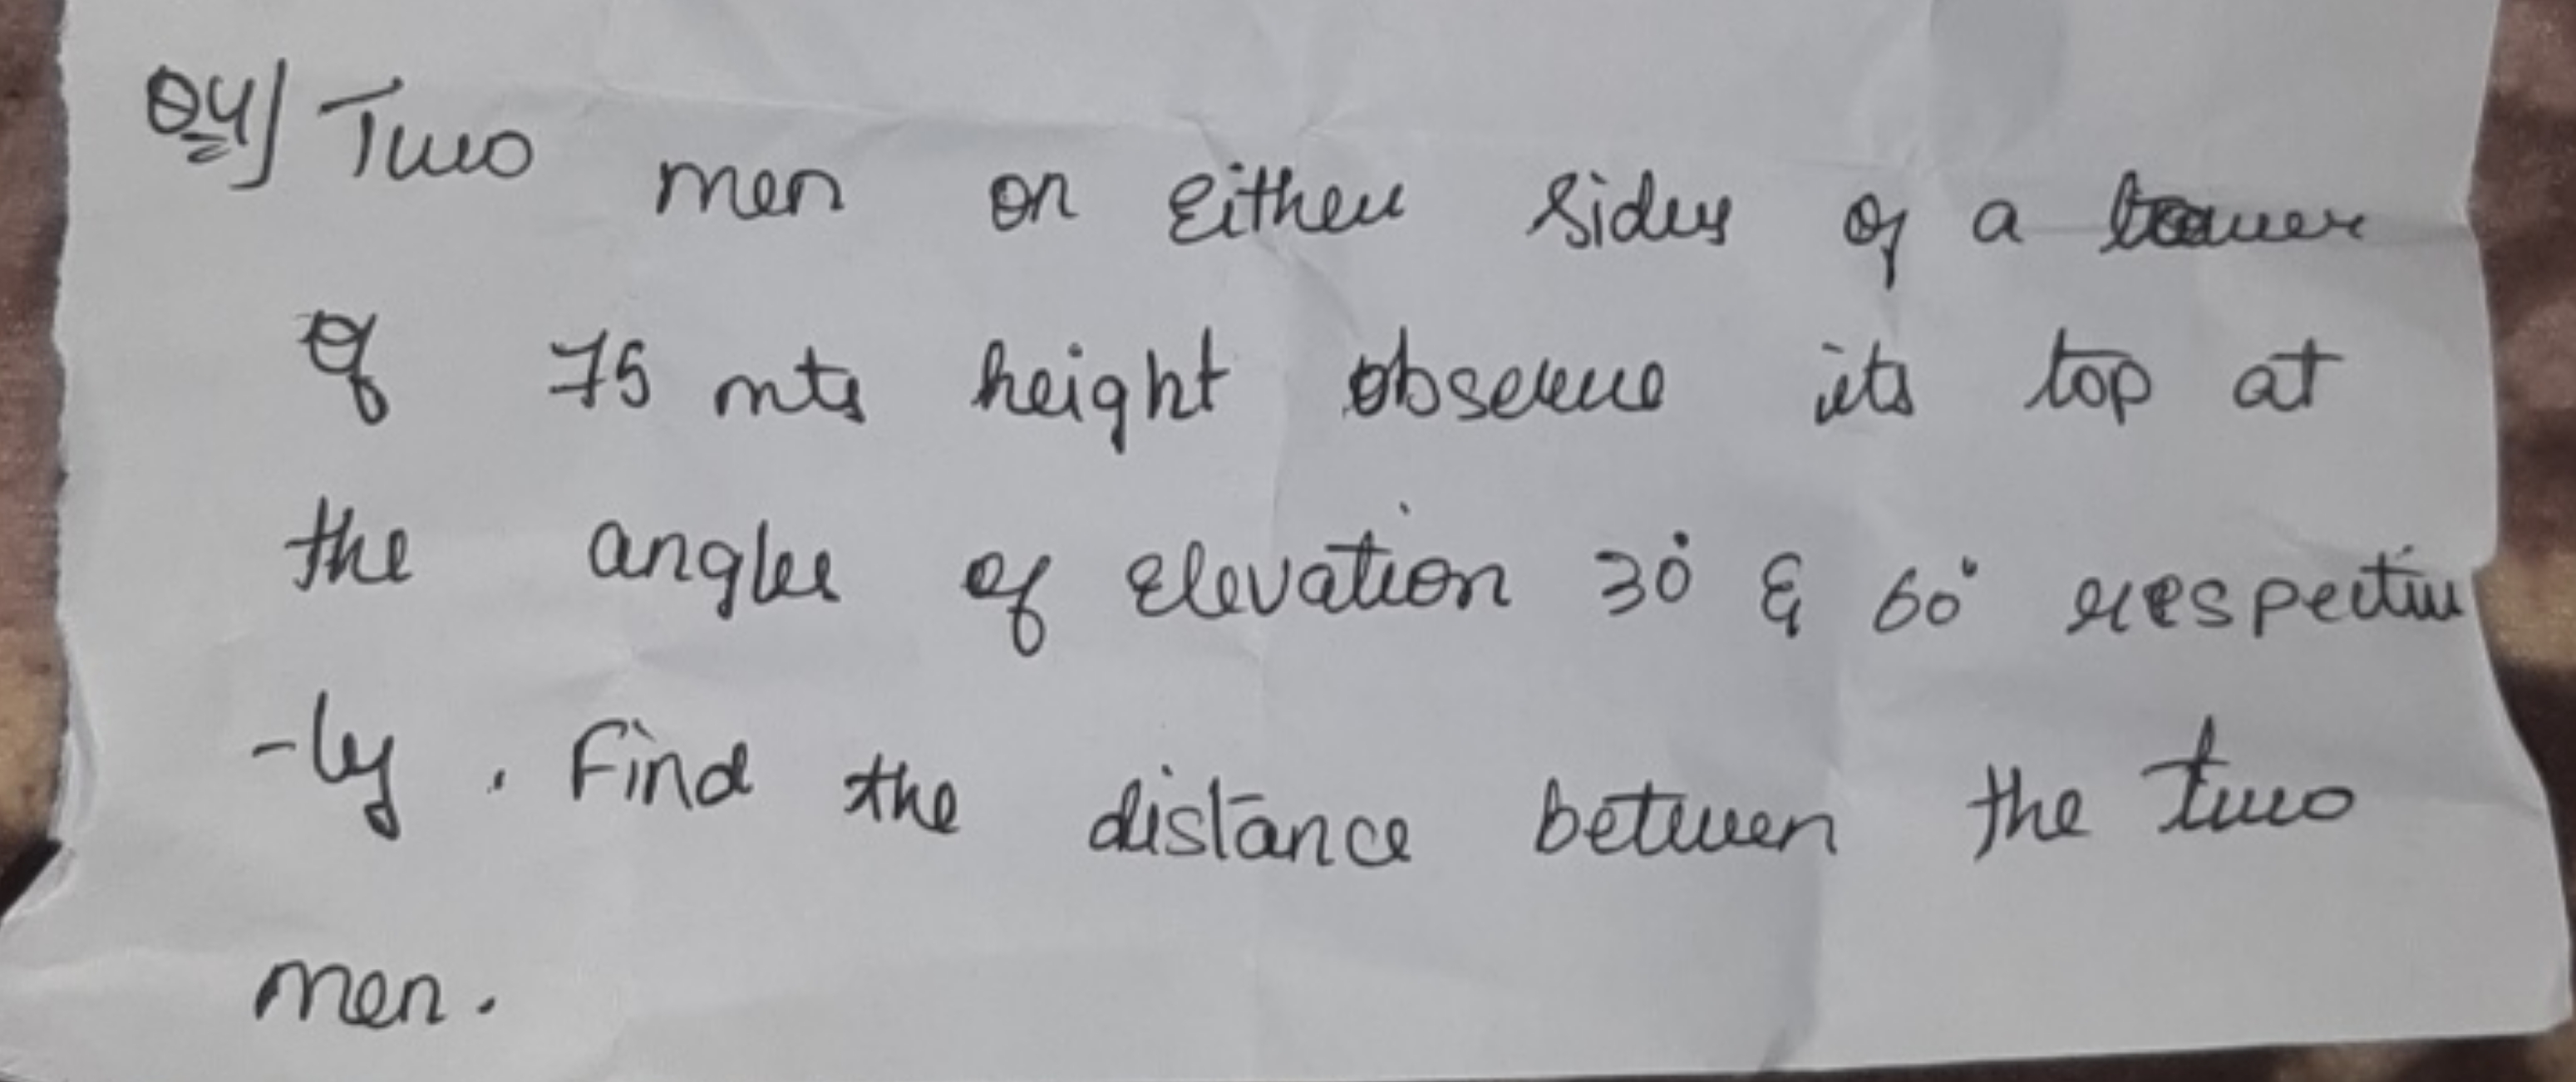 Q4) Two men on Either sides of a tower
of 75 mts height observe its top at
the angles of Elevation 30° & 60° respectiv
-ly . Find the distance between the two
men.